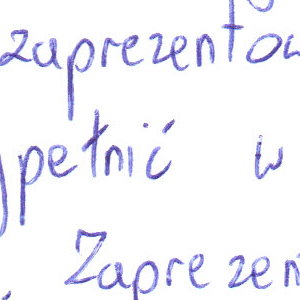 zaprezentow
ypełnić w
Zaprezen